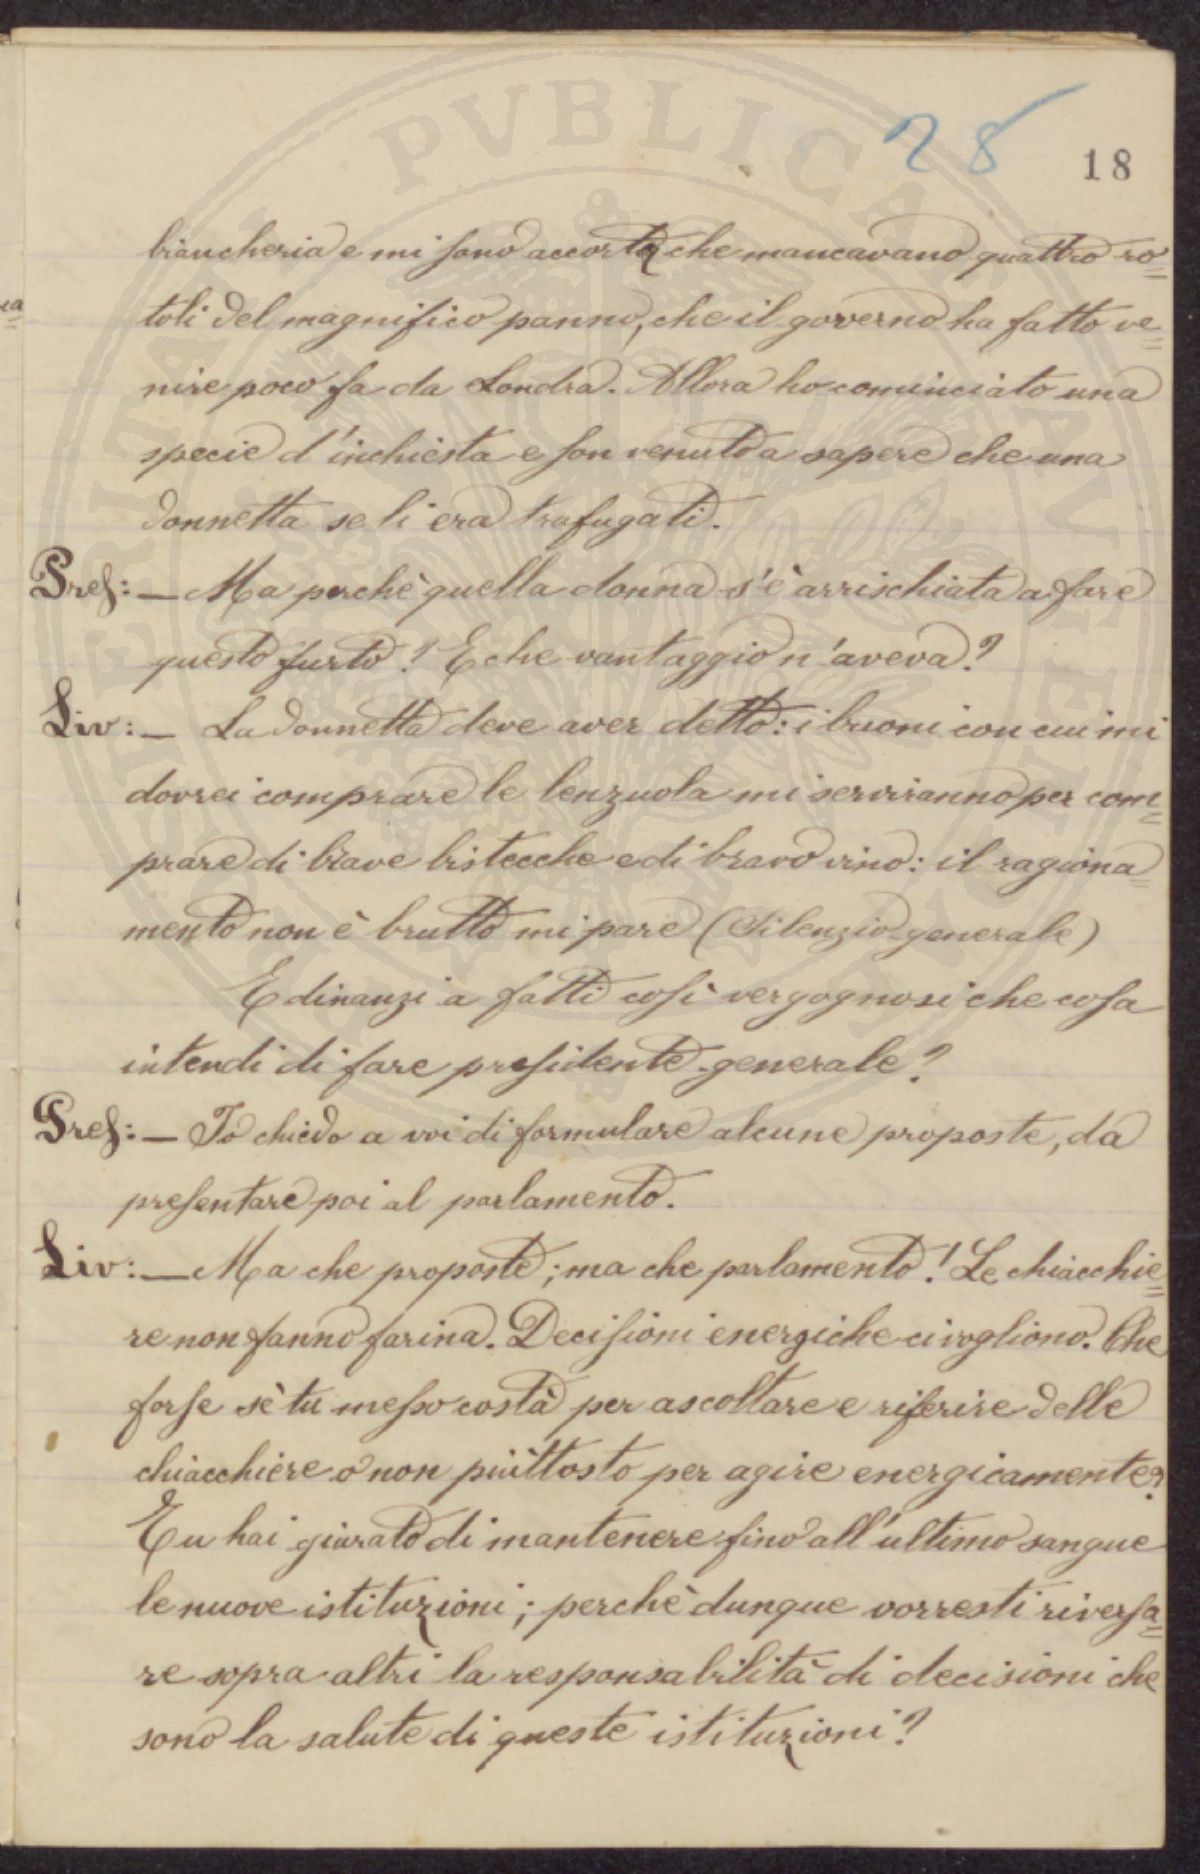 28
18
biancheria e mi sono accorto che mancavano quattro ro=
toli del magnifico panno, che il governo ha fatto ve=
nire poco fa da Londra. Allora ho cominciato una
specie d'inchiesta e son venuto a sapere che una
donnetta se li era trafugati.
Pres: — Ma perchè quella donna s'è arrischiata a fare
questo furto? E che vantaggio n'aveva?
Liv: — La donnetta deve aver detto: i buoni con cui mi
dovrei comprare le lenzuola mi serviranno per com=
prare di brave bistecche e di bravo vino: il ragiona=
mento non è brutto mi pare (Silenzio generale)
E dinanzi a fatti così vergognosi che cosa
intendi di fare presidente generale?
Pres: — Io chiedo a voi di formulare alcune proposte, da
presentare poi al parlamento.
Liv: — Ma che proposte; ma che parlamento! Le chiacchie=
re non fanno farina. Decisioni energiche ci vogliono. Che
forse sè tu messo costà per ascoltare e riferire delle
chiacchiere o non piùttosto per agire energicamente?
Tu hai giurato di mantenere fino all'ultimo sangue
le nuove istituzioni; perchè dunque vorresti riversa=
re sopra altri la responsabilità di decisioni che
sono la salute di queste istituzioni?